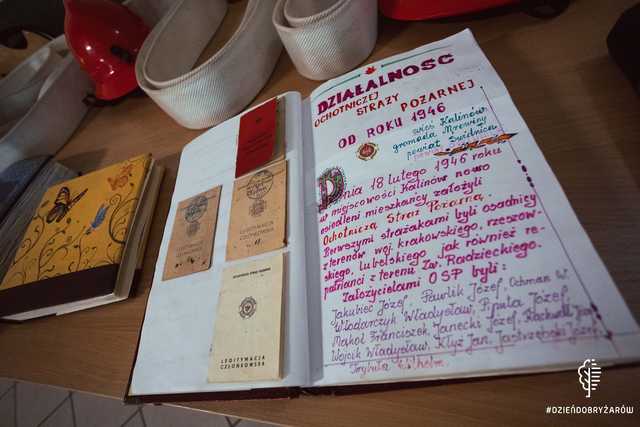 DZIAŁALNOŚĆ
OCHOTNICZEJ
STRAŻY POŻARNEJ
OD ROKU 1946
wieś Kalinów
gromada Mrowiny
powiat Świdnica
Dnia 18 lutego 1946 roku
w miejscowości Kalinów nowo
osiedleni mieszkańcy założyli
Ochotniczą Straż Pożarną.
Pierwszymi strażakami byli osadnicy
z terenów woj. krakowskiego, rzeszow-
skiego, lubelskiego jak również re-
patrianci z terenu Zw. Radzieckiego.
Założycielami OSP byli:
Jakubiec Józef, Pawlik Józef, Ochman W.
Włodarczyk Władysław, Pipała Józef
Mąkol Franciszek, Janecki Józef, Józef
Wojcik Władysław, Kłyż Jan, Jastrzębski Józef
Trybuła Wilhelm.
LEGITYMACJA
CZŁONKOWSKA
LEGITYMACJA
CZŁONKOWSKA
LEGITYMACJA
CZŁONKOWSKA
#DZIEŃDOBRYŻARÓW